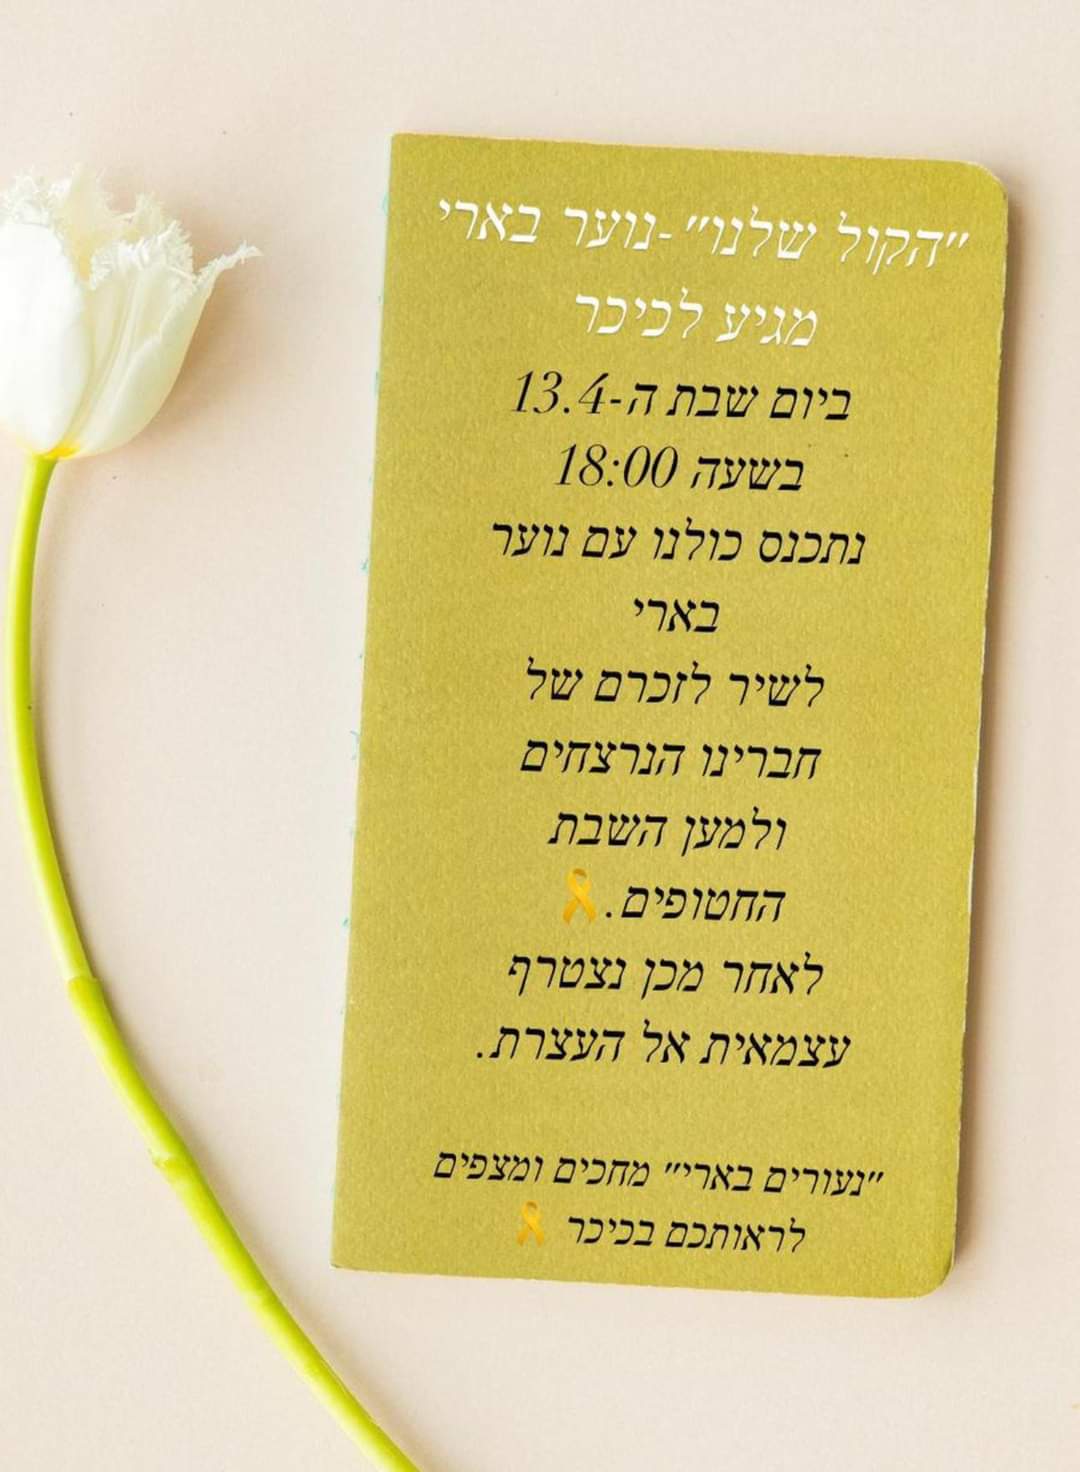 "הקול שלנו"-נוער בארי
מגיע לכיכר
ביום שבת ה-13.4
בשעה 18:00
נתכנס כולנו עם נוער
בארי
לשיר לזכרם של
חברינו הנרצחים
ולמען השבת
החטופים.🎗️
לאחר מכן נצטרף
עצמאית אל העצרת.
"נעורים בארי" מחכים ומצפים
לראותכם בכיכר 🎗️